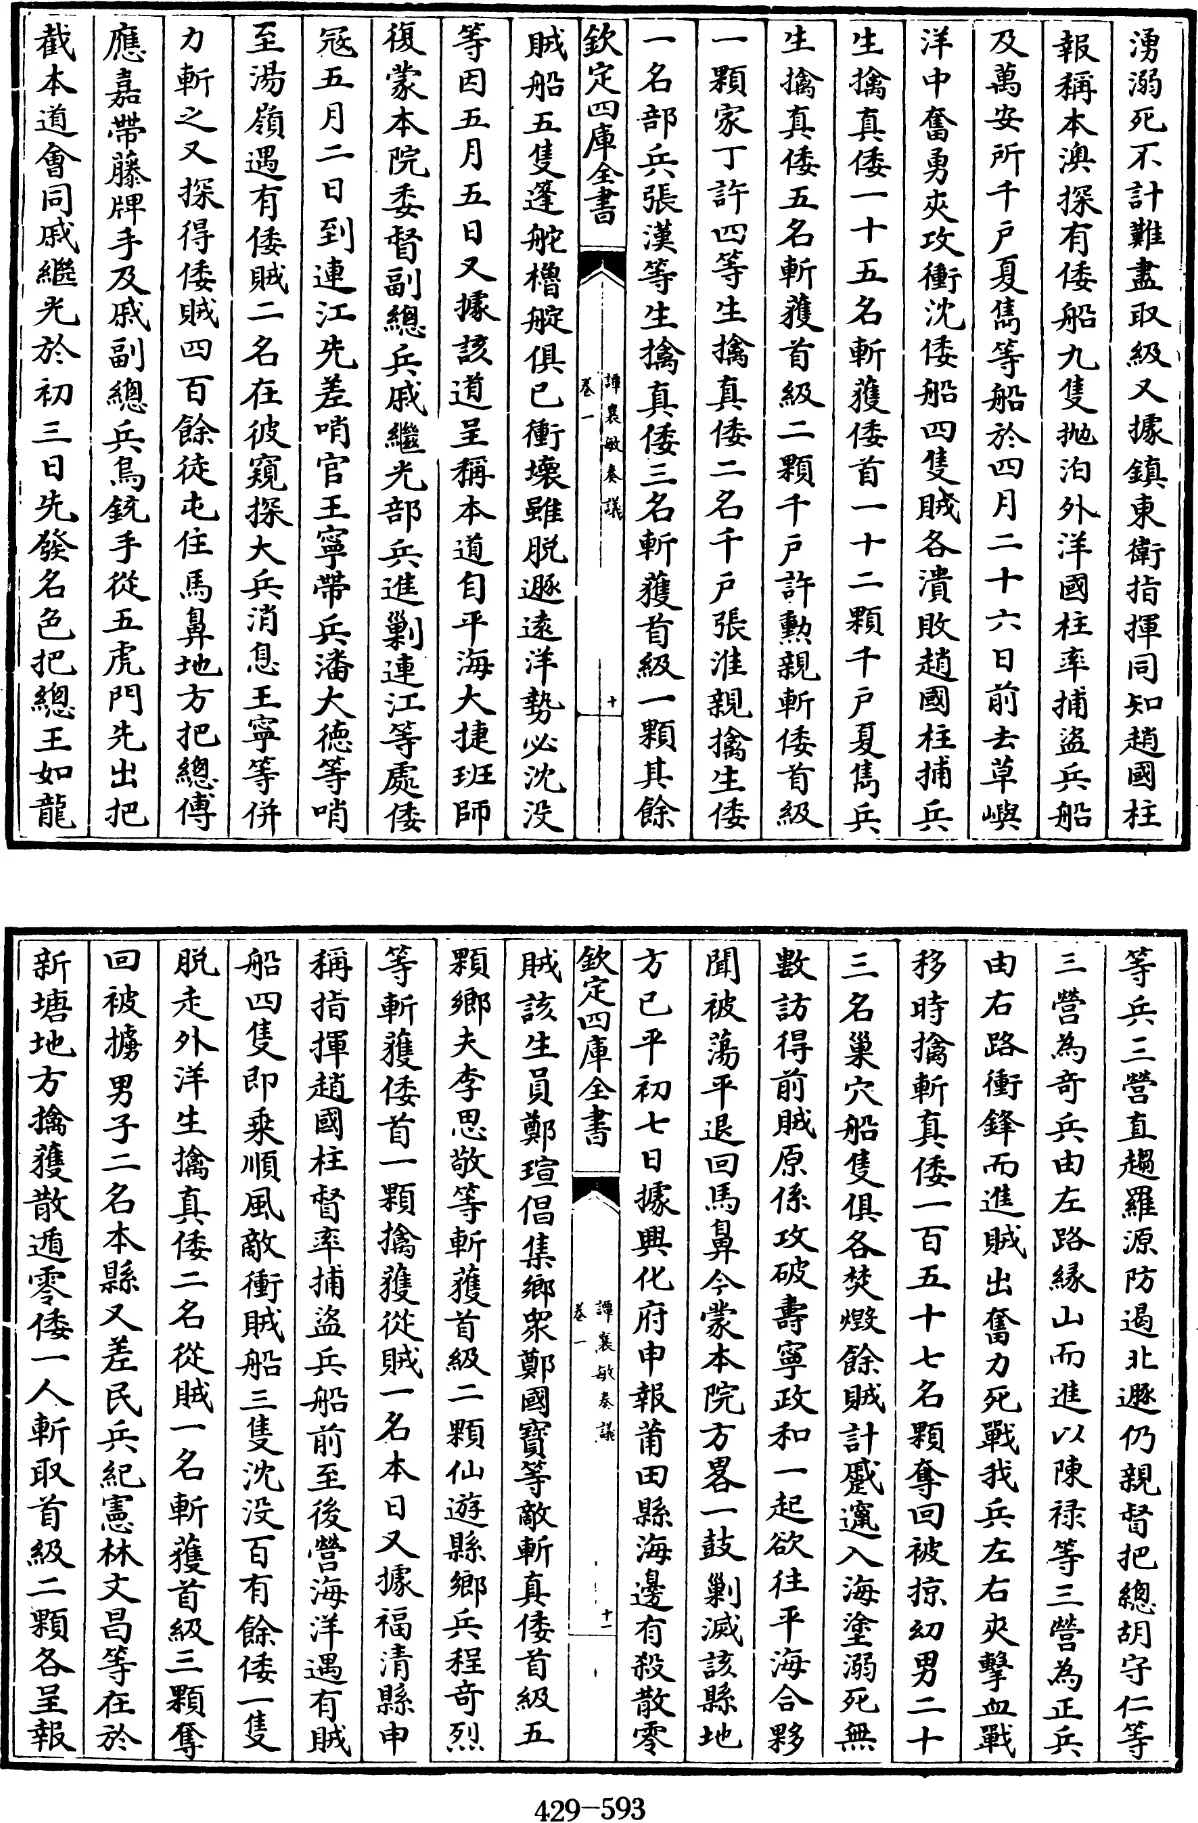 湧溺死不計難盡取級又據鎮東衛指揮同知趙國柱
報稱本澳探有倭船九隻抛泊外洋國柱率捕盜兵船
及萬安所千戶夏雋等船於四月二十六日前去草嶼
洋中奮勇夾攻衝沈倭船四隻賊各潰敗趙國柱捕兵
生擒真倭一十五名斬獲倭首一十二顆千戶夏雋兵
生擒真倭五名斬獲首級二顆千戶許勲親斬倭首級
一顆家丁許四等生擒真倭二名千戶張淮親擒生倭
一名部兵張漢等生擒真倭三名斬獲首級一顆其餘
欽定四庫全書
譚襄敏奏議
卷一
十
賊船五隻蓬舵櫓艍俱已衝壞雖脱遯逺洋勢必沈没
等因五月五日又據該道呈稱本道自平海大捷班師
復蒙本院委督副總兵戚繼光部兵進剿連江等處倭
冦五月二日到連江先差哨官王寧帶兵潘大徳等哨
至湯嶺遇有倭賊二名在彼窺探大兵消息王寧等併
力斬之又探得倭賊四百餘徒屯住馬鼻地方把總傅
應嘉帶藤牌手及戚副總兵鳥銃手從五虎門先出把
截本道會同戚繼光於初三日先發名色把總王如龍
等兵三營直趨羅源防遏北遯仍親督把總胡守仁等
三營為奇兵由左路緣山而進以陳禄等三營為正兵
由右路衝鋒而進賊出奮力死戰我兵左右夾擊血戰
移時擒斬真倭一百五十七名顆奪回被掠幼男二十
三名巢穴船隻俱各焚燬餘賊計蹙遁入海塗溺死無
數訪得前賊原係攻破壽寧政和一起欲往平海合夥
聞被蕩平退回馬鼻今蒙本院方畧一鼓剿滅該縣地
方已平初七日據興化府申報莆田縣海邊有殺散零
欽定四庫全書
譚襄敏奏議
卷一
十一
賊該生員鄭瑄倡集鄉衆鄭國寳等敵斬真倭首級五
顆鄉夫李思敬等斬獲首級二顆仙遊縣鄉兵程奇烈
等斬獲倭首一顆擒獲從賊一名本日又據福清縣申
稱指揮趙國柱督率捕盜兵船前至後營海洋遇有賊
船四隻即乘順風敵衝賊船三隻沈没百有餘倭一隻
脱走外洋生擒真倭二名從賊一名斬獲首級三顆奪
回被擄男子二名本縣又差民兵紀憲林文昌等在於
新塘地方擒獲散遁零倭一人斬取首級二顆各呈報
429-593